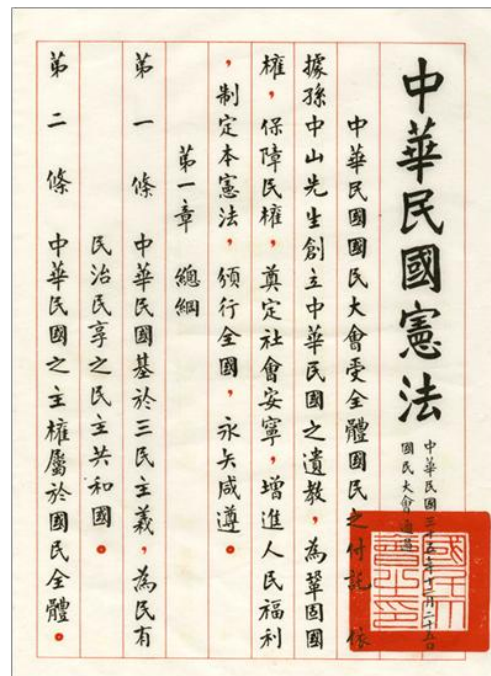 中華民國憲法
中華民國三十五年十二月二十五日
國民大會通過
中華民國國民大會受全體國民之付託 依
據孫中山先生創立中華民國之遺教,為鞏固國
權,保障民權,奠定社會安寧,增進人民福利
,制定本憲法,頒行全國,永矢咸遵。
第一章 總綱
第一條 中華民國基於三民主義,為民有
民治民享之民主共和國。
第二條 中華民國之主權屬於國民全體。
國民大
會之印